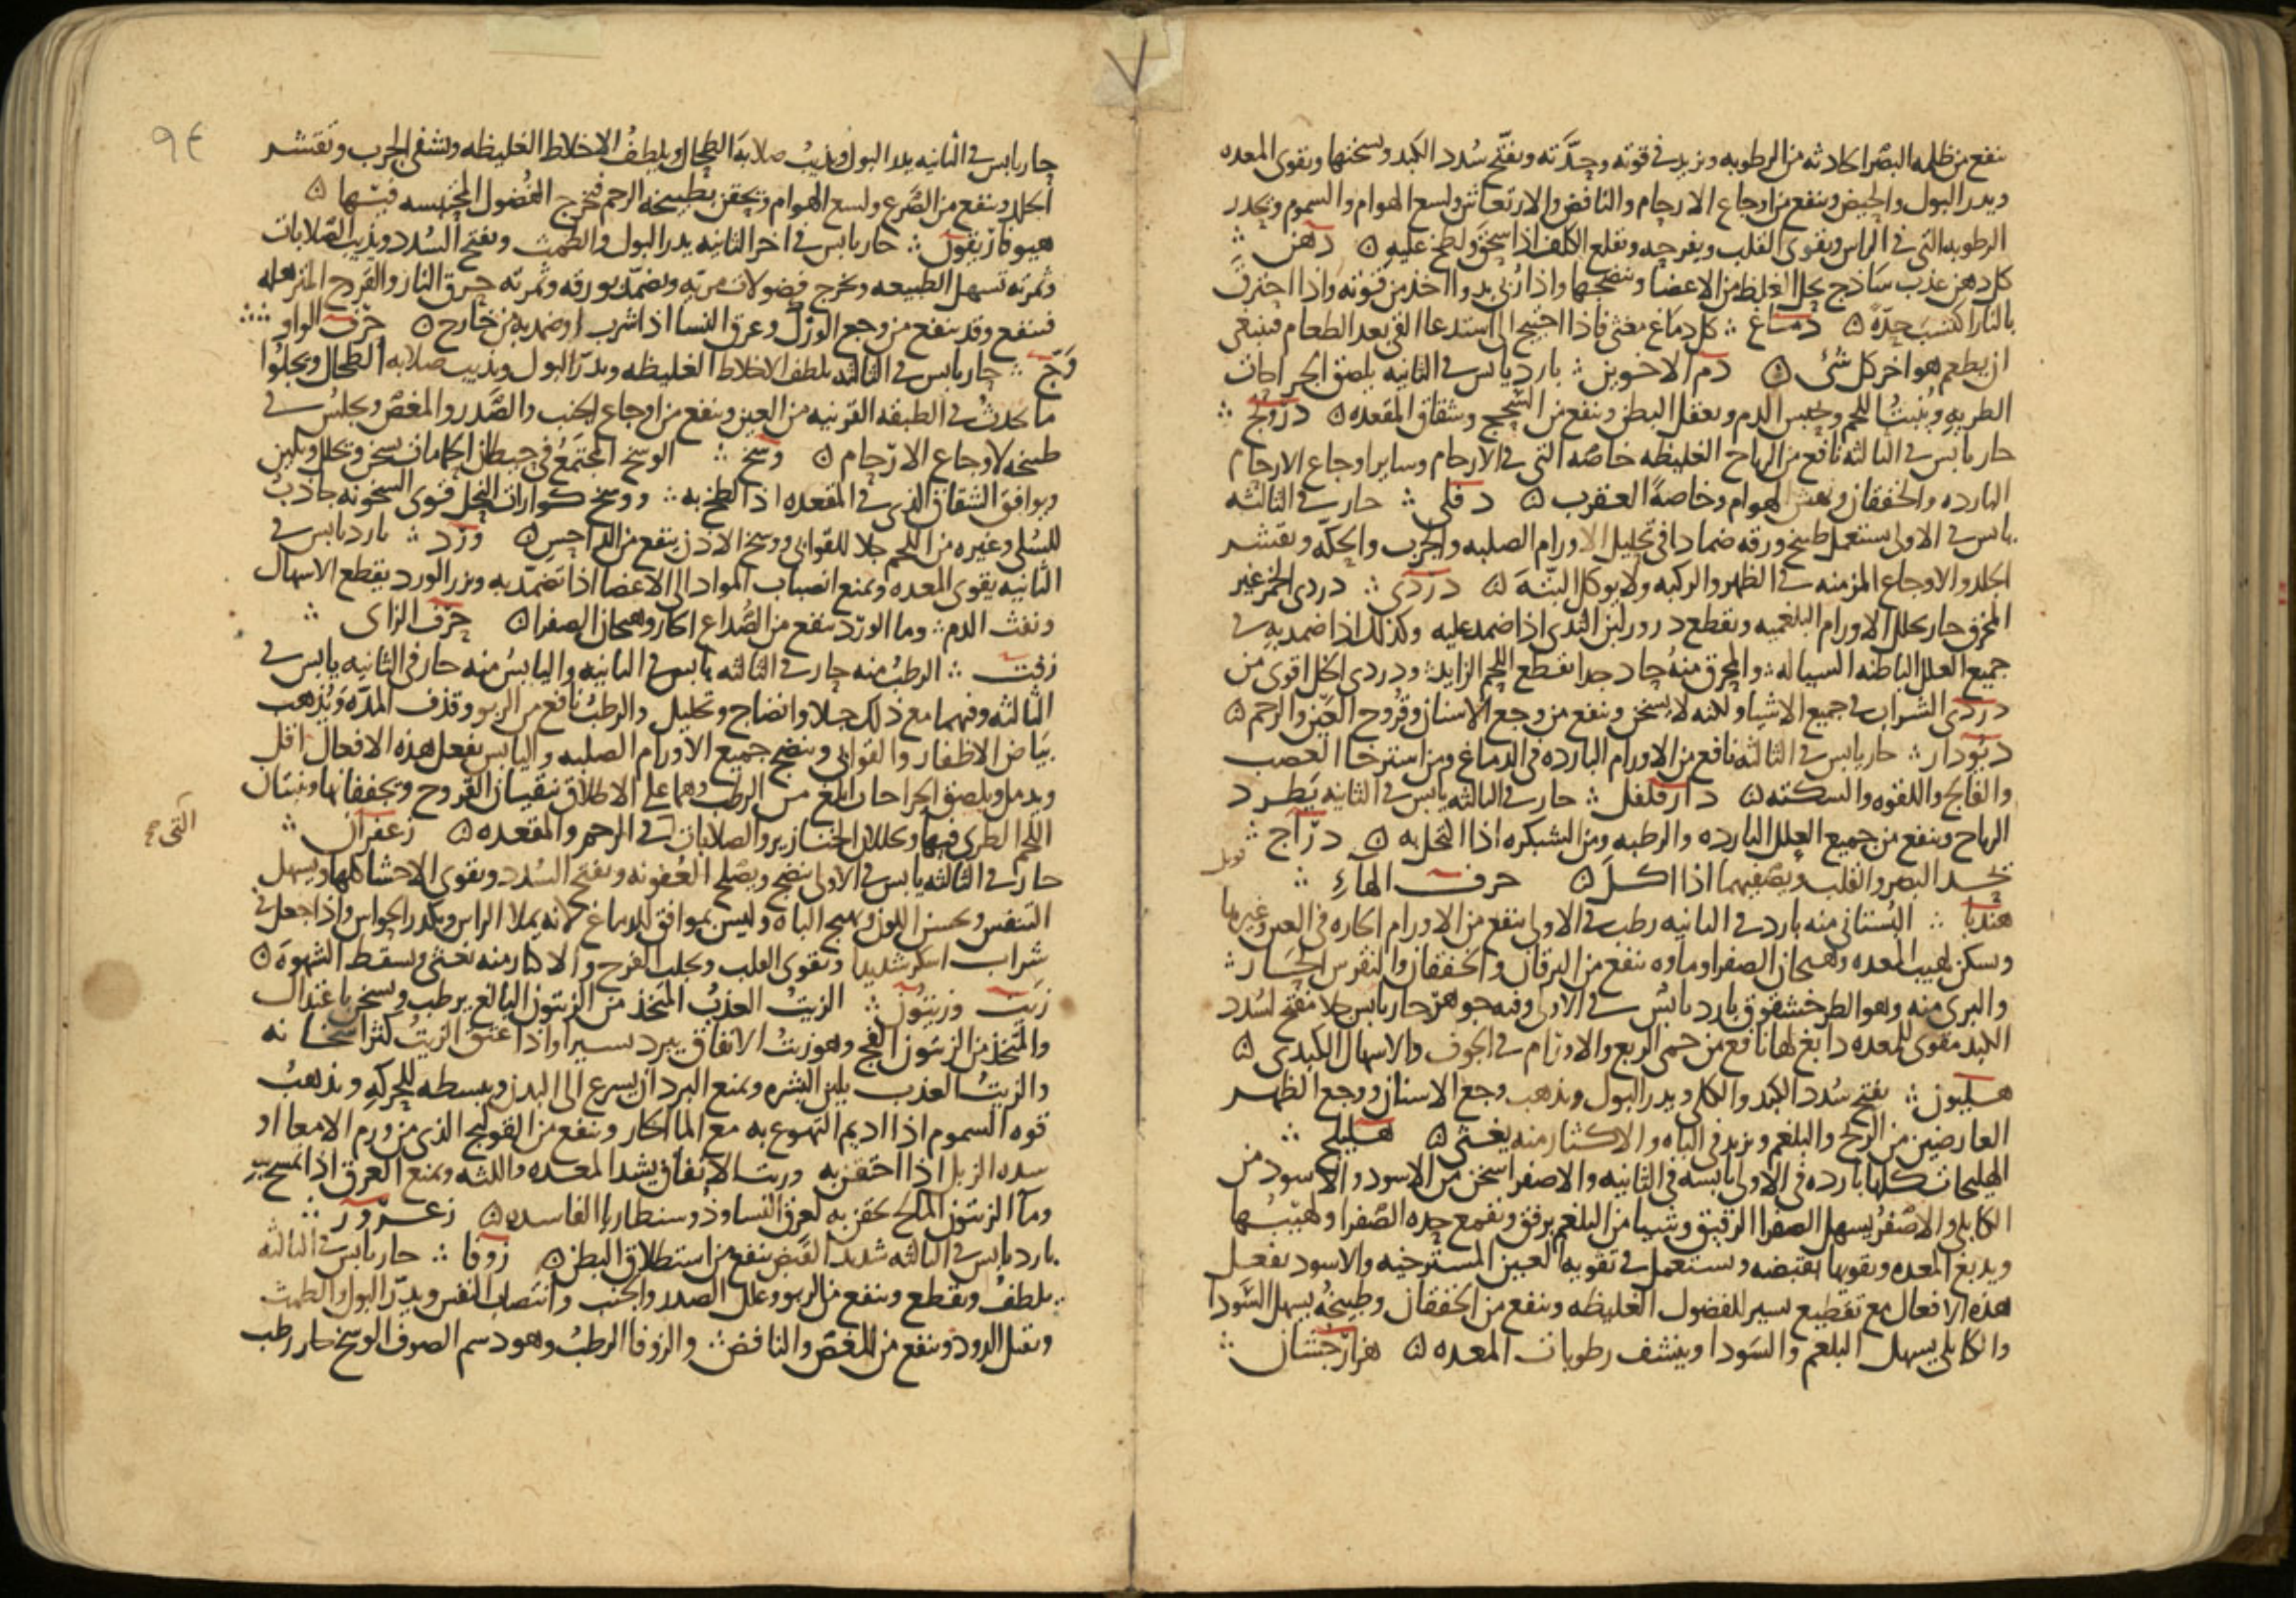 ينفع من ظلمه البصر الحادثه من الرطوبه ويزيد في قوته وحدته ويفتح سدد الكبد ويسخنها ويقوى المعده
ويدر البول والحيض وينفع من اوجاع الارحام والنافض والارتعاش ولسع الهوام والسموم ويحدر
الرطوبه التي في الراس ويقوى القلب ويفرحه ويقلع الكلف اذا سحق ولطخ عليه ۞ دهن ∴
كل دهن عذب ساذج يحل الغلظ من الاعضا وينضجها واذا زنخ اخذ من قوته واذا احترق
بالنار اكتسب حدة ۞ دماغ ∴ كل دماغ مغثي فاذا احتيج الى استدعا القي بعد الطعام فينبغي
ان يطعم هو اخر كل شئ ۞ دم الاخوين ∴ بارد يابس في الثانيه يلصق الجراحات
الطريه وينبت اللحم ويحبس الدم ويعقل البطن وينفع من السحج وشقاق المقعده ۞ درونج ∴
حار يابس في الثالثه نافع من الرياح الغليظه خاصه التي في الارحام وساير اوجاع الارحام
البارده والخفقان ونهش الهوام وخاصة العقرب ۞ دفلى ∴ حار في الثالثه
يابس في الاولى يستعمل طبيخ ورقه ضمادا في تحليل الاورام الصلبه والجرب والحكه وتقشر
الجلد والاوجاع المزمنه في الظهر والركبه ولا يوكل البته ۞ دردى ∴ دردى الخمر غير
المحرق حار يحلل الاورام البلغميه ويقطع درور لبن الثدى اذا ضمد عليه وكذلك اذا ضمد به في
جميع العلل الباطنه السياله ∴ والمحرق منه حاد جدا يقطع اللحم الزايد ∴ ودردى الخل اقوى من
دردى الشراب في جميع الاشيا ولكنه لا يسخن وينفع من وجع الاسنان وقروح العين والرحم ۞
ديودار ∴ حار يابس في الثالثه نافع من الاورام البارده في الدماغ ومن استرخا العصب
والفالج واللقوه والسكته ۞ دار فلفل ∴ حار في الثالثه يابس في الثانيه يطرد
الرياح وينفع من جميع العلل البارده والرطبه ومن الشبكره اذا اكتحل به ۞ دراج ∴
يحد البصر والقلب ويصفيهما اذا اكل ۞ حرف الهاء ∴
هندبا ∴ البستاني منه بارد في الثانيه رطب في الاولى ينفع من الاورام الحاره في العين وغيرها
ويسكن لهيب المعده وهيجان الصفرا وماوه ينفع من اليرقان والخفقان والنقرس الحار ∴
والبرى منه وهو الطرخشقوق بارد يابس في الاولى وفيه جوهر حار يابس جلا مفتح لسدد
الكبد مقوى للمعده دابغ لها نافع من حمى الربع والاورام في الجوف والاسهال الكبدى ۞
هليون ∴ يفتح سدد الكبد والكلى ويدر البول ويذهب وجع الاسنان ووجع الظهر
العارضين من الريح والبلغم ويزيد في الباه والاكثار منه يغثى ۞ هليلج ∴
الهليلجات كلها بارده في الاولى يابسه في الثانيه والاصفر اسخن من الاسود والاسود من
الكابلي والاصفر يسهل الصفرا الرقيق وشيا من البلغم برفق ويقمع حده الصفرا ولهيبها
ويدبغ المعده ويقويها بقبضه ويستعمل في تقويه العين المسترخيه والاسود يفعل
هذه الافعال مع تقطيع يسير للفضول الغليظه وينفع من الخفقان وطبيخه يسهل السودا
والكابلي يسهل البلغم والسودا وينشف رطوبات المعده ۞ هزارجشان ∴
٩٤
حار يابس في الثانيه يدر البول ويذيب صلابة الطحال ويلطف الاخلاط الغليظه ويشفي الجرب وتقشر
الجلد وينفع من الصرع ولسع الهوام ويحقن بطبيخه الرحم فتخرج الفضول المحتبسه فيها ۞
هيوفاريقون ∴ حار يابس في اخر الثانيه يدر البول والطمث ويفتح السدد ويذيب الصلابات
وثمرته تسهل الطبيعه وتخرج فضولات مريه ويضمد بورقه وثمرته حرق النار والقروح المترهله
فينفع وقد ينفع من وجع الورك وعرق النسا اذا شرب او ضمد به من خارج ۞ حرف الواو ∴
وج ∴ حار يابس في الثالثه يلطف الاخلاط الغليظه ويدر البول ويذيب صلابه الطحال ويجلوا
ما يحدث في الطبقه القرنيه من العين وينفع من اوجاع الجنب والصدر والمغص ويجلس في
طبيخه لاوجاع الارحام ۞ وسخ ∴ الوسخ المجتمع في حيطان الحمامات يسخن ويحلل ويلين
ويوافق الشقاق الذى في المقعده اذا لطخ به ∴ ووسخ كوارات النحل قوى السخونه جاذب
للسلى وغيره من اللحم جلا للقوابي ووسخ الاذن ينفع من الداحس ۞ ورد ∴ بارد يابس في
الثانيه يقوى المعده ويمنع انصباب المواد الى الاعضا اذا تضمد به وبزر الورد يقطع الاسهال
ونفث الدم ∴ وما الورد ينفع من الصداع الحار وهيجان الصفرا ۞ حرف الزاى ∴
زفت ∴ الرطب منه حار في الثالثه يابس في الثانيه واليابس منه حار في الثانيه يابس في
الثالثه وفيهما مع ذلك جلا وانضاج وتحليل والرطب نافع من الربو وقذف المده ويذهب
بياض الاظفار والقوابي وينضج جميع الاورام الصلبه واليابس يفعل هذه الافعال اقل
ويدمل ويلصق الجراحات ابلغ من الرطب وهما على الاطلاق ينقيان القروح ويجففانها وينبتان
اللحم الطرى فيها ويحللان الخنازير والصلابات في الرحم والمقعده ۞ زعفران ∴
التي
حار في الثالثه يابس في الاولى ينضج ويصلح العفونه ويفتح السدد ويقوى الاحشا كلها ويسهل
التنفس ويحسن اللون ويهيج الباه وليس بموافق للدماغ لانه يملا الراس ويكدر الحواس واذا جعل في
شراب اسكر شديدا ويقوى القلب ويجلب الفرح والاكثار منه يغثى ويسقط الشهوة ۞
زيت وزيتون ∴ الزيت العذب المتخذ من الزيتون اليانع يرطب ويسخن باعتدال
والمتخذ من الزيتون الفج وهو زيت الانفاق يبرد يسيرا واذا عتق الزيت كثر اسخانه
والزيت العذب يلين البشره ويمنع البرد ان يسرع الى البدن ويبسطه للحركه ويذهب
قوه السموم اذا اديم التهوع به مع الما الحار وينفع من القولنج الذى من ورم الامعا او
سده الزبل اذا احتقن به وزيت الانفاق يشد المعده واللثه ويمنع العرق اذا تمسح به
وما الزيتون المالح يحقن به لعرق النسا وذوسنطاريا الفاسده ۞ زعرور ∴
بارد يابس في الثالثه شديد القبض ينفع من استطلاق البطن ۞ زوفا ∴ حار يابس في الثالثه
يلطف ويقطع وينفع من الربو وعلل الصدر والجنب وانتصاب النفس ويدر البول والطمث
ويقتل الدود وينفع من المغص والنافض ∴ والزوفا الرطب وهو دسم الصوف الوسخ حار رطب